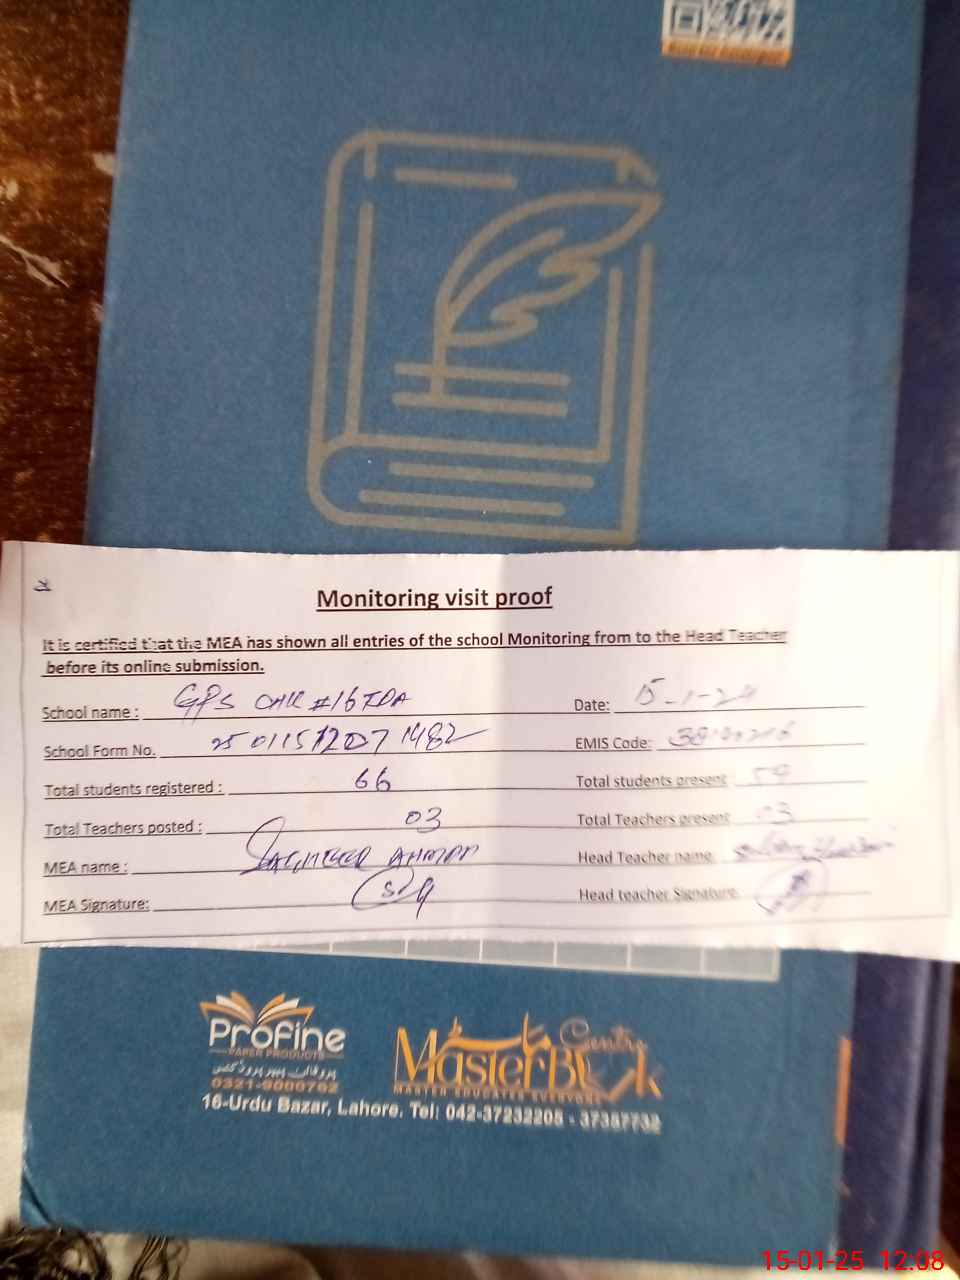 Monitoring visit proof
It is certified that the MEA has shown all entries of the school Monitoring from to the Head Teacher
before its online submission.
School name : GPS CHK #16 TDA
Date: 15-1-24
School Form No. 250115120711482
EMIS Code:
Total students registered : 66
Total students present 59
Total Teachers posted : 03
Total Teachers present 03
MEA name : AHMAD
Head Teacher name
MEA Signature:
Head teacher Signature
Profine
PAPER PRODUCTS
پروفائن پیپر پروڈکٹس
0321-9000702
ماسٹر
MasterBook Centre
MASTER EDUCATES EVERYONE
16-Urdu Bazar, Lahore. Tel: 042-37232205 - 37357732
15-01-25 12:08